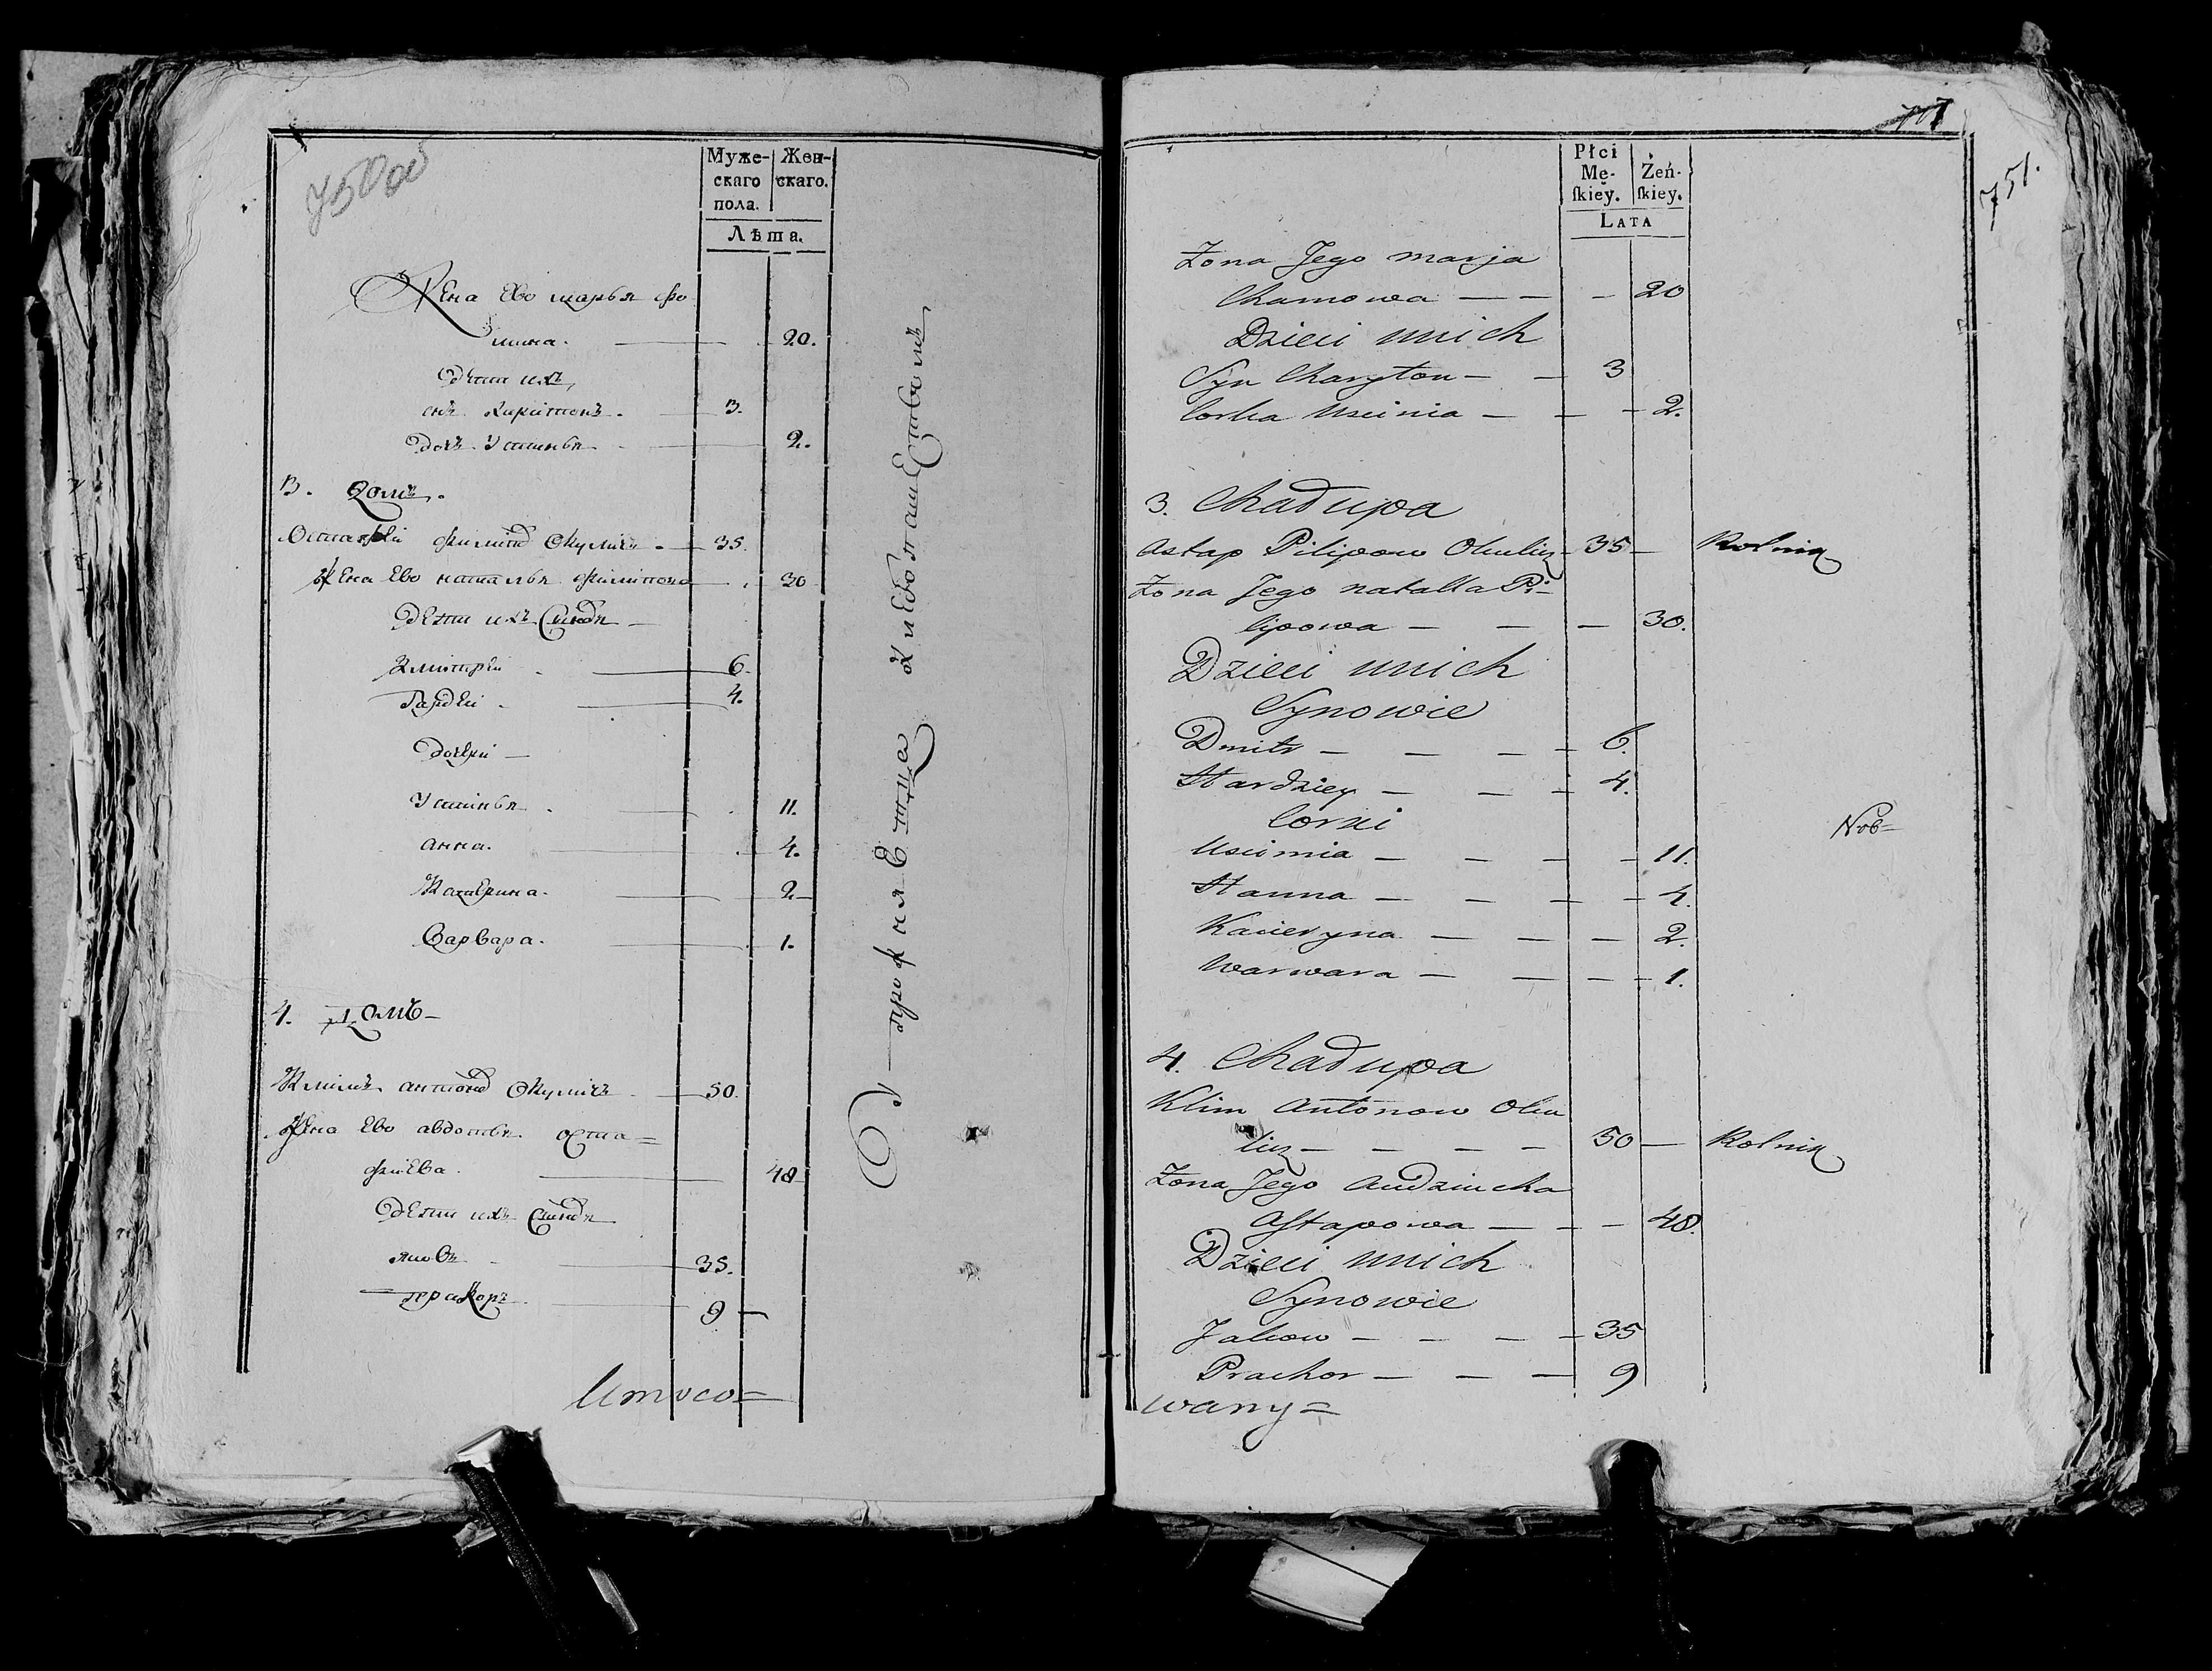 750 об
Муже-
скаго
пола.
Жен-
скаго.
Лѣта.
Жена Ево марья фо
мина. 20.
дети ихъ,
снъ харитонъ. 3.
дочь Устинья 2.
3. домъ.
Остафѣй филипо Окуличъ. 35.
жена Ево наталья филипова 30
дети ихъ Синовя
дмитрѣй 6.
Гардей 4.
дочери
Устинья. 11.
анна. 4.
Катерина. 2
варвара. 1.
4. домъ
Климъ антоно Окуличъ 50.
жена Ево авдотья оста=
фиева. 48
дети ихъ Синовя
яковъ 35.
прахоръ 9
701
751.
Płci
Mę-
ſkiey.
Żeń-
ſkiey.
LATA
Żona Jego marja
Chamowa — — — 20
Dzieci unich
Syn Charyton — — 3
Corka Uscinia — — — 2.
3. Chadupa
Astap Pilipow Okulicz — 35 — Rolnik
Żona Jego natalla Pi-
lipowa — — — 30.
Dzieci unich
Synowie
Dmitr — — — 6.
Hardziey — — — 4.
Corki
Uscinnia — — — — 11.
Nob=
Hanna — — — — 4.
Kacieryna — — — 2.
Warwara — — — — 1.
4. Chadupa
Klim Antonow Oku
licz — — — — 50 — Rolnik
Żona Jego Audziucha
Aſtapowa — — — 48.
Dzieci unich
Synowie
Jakow — — — — 35
Prachor — — — 9
wany=